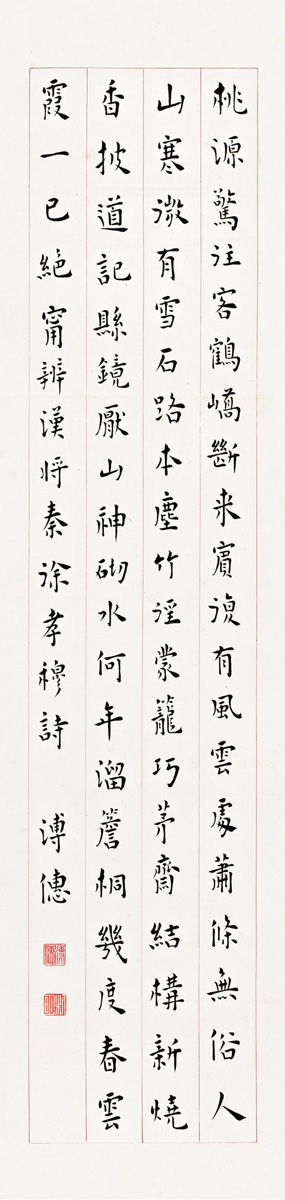 桃源驚往客鶴嶠斷来賓復有風雲處蕭條無俗人
山寒微有雪石路本塵竹徑蒙籠巧茅齋結構新燒
香披道記縣鏡厭山神砌水何年溜簷桐幾度春雲
霞一已絕甯辨漢将秦徐孝穆詩 溥僡